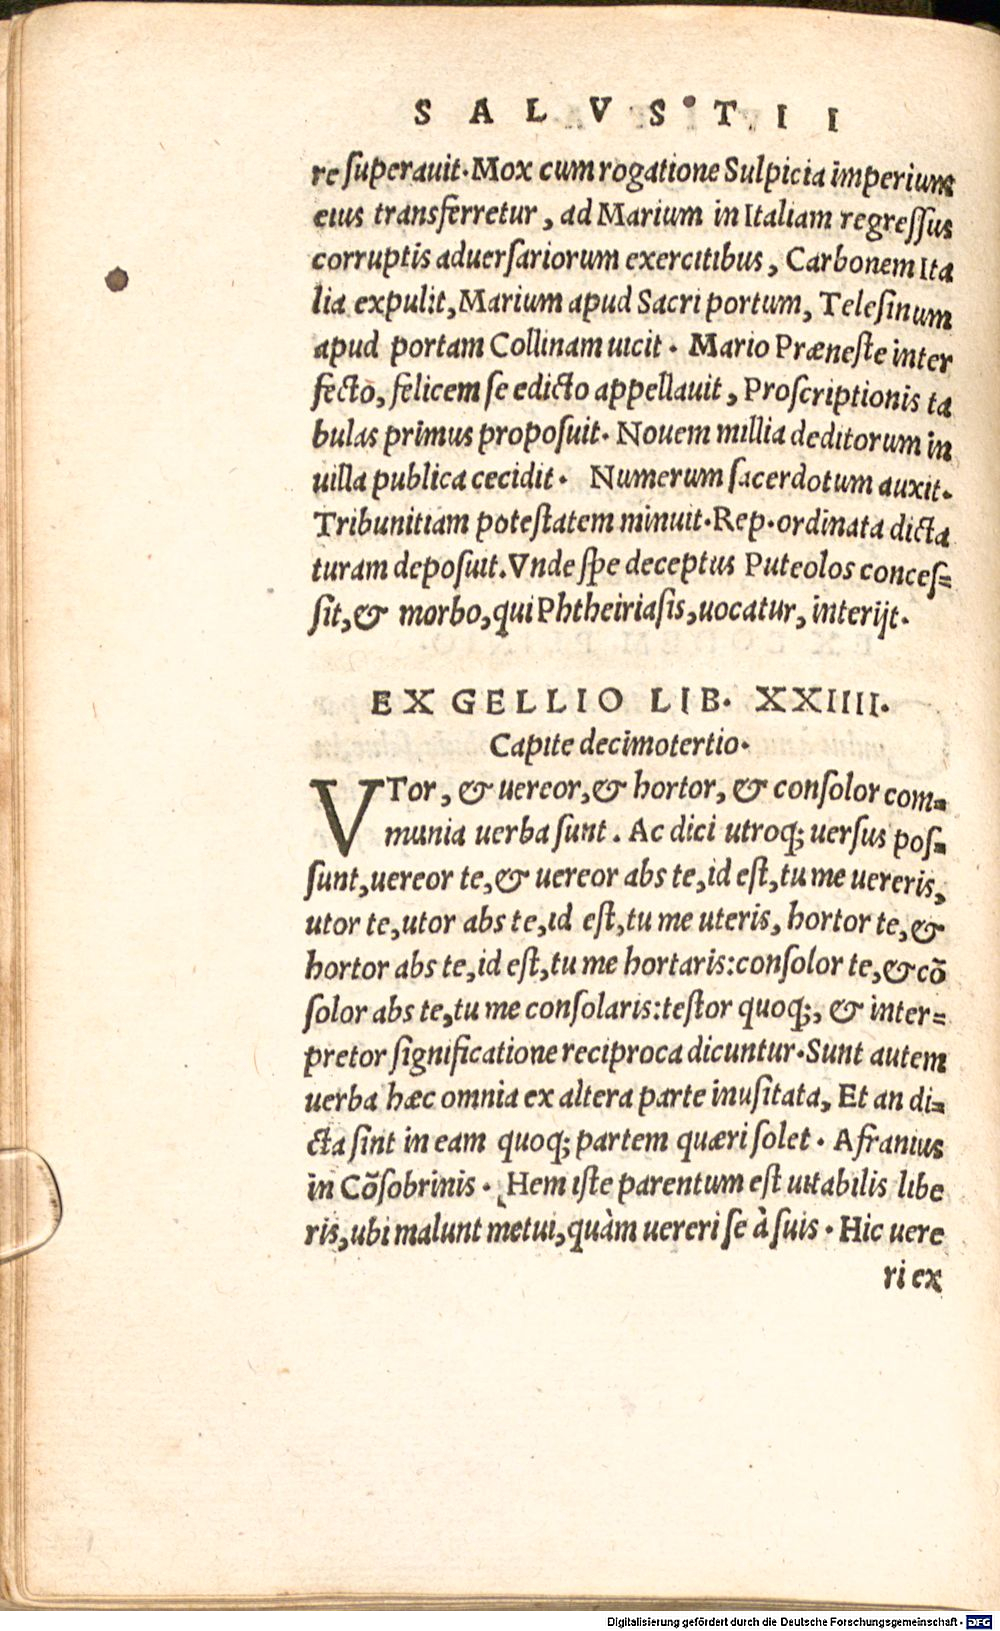 SALVSTII
re ſuperauit. Mox cum rogatione Sulpicia imperium
eius transferretur, ad Marium in Italiam regreſſus
corruptis aduerſariorum exercitibus, Carbonem Ita
lia expulit, Marium apud Sacri portum, Teleſinum
apud portam Collinam uicit. Mario Præneſte inter
fecto, felicem ſe edicto appellauit, Proſcriptionis ta
bulas primus propoſuit. Nouem millia deditorum in
uilla publica cecidit. Numerum ſacerdotum auxit.
Tribunitiam poteſtatem minuit. Rep. ordinata dicta
turam depoſuit. Vnde ſpe deceptus Puteolos conceſ=
ſit, & morbo, qui Phtheiriaſis, uocatur, interijt.
EX GELLIO LIB. XXIIII.
Capite decimotertio.
VTor, & uereor, & hortor, & conſolor com=
munia uerba ſunt. Ac dici utroq; uerſus poſ=
ſunt, uereor te, & uereor abs te, id eſt, tu me uereris,
utor te, utor abs te, id eſt, tu me uteris, hortor te, &
hortor abs te, id eſt, tu me hortaris: conſolor te, & cõ
ſolor abs te, tu me conſolaris: teſtor quoq;, & inter=
pretor ſignificatione reciproca dicuntur. Sunt autem
uerba hæc omnia ex altera parte inuſitata, Et an di=
cta ſint in eam quoq; partem quæri ſolet. Afranius
in Cõſobrinis. Hem iſte parentum eſt uitabilis libe
ris, ubi malunt metui, quàm uereri ſe à ſuis. Hic uere
ri ex
Digitalisierung gefördert durch die Deutsche Forschungsgemeinschaft - DFG